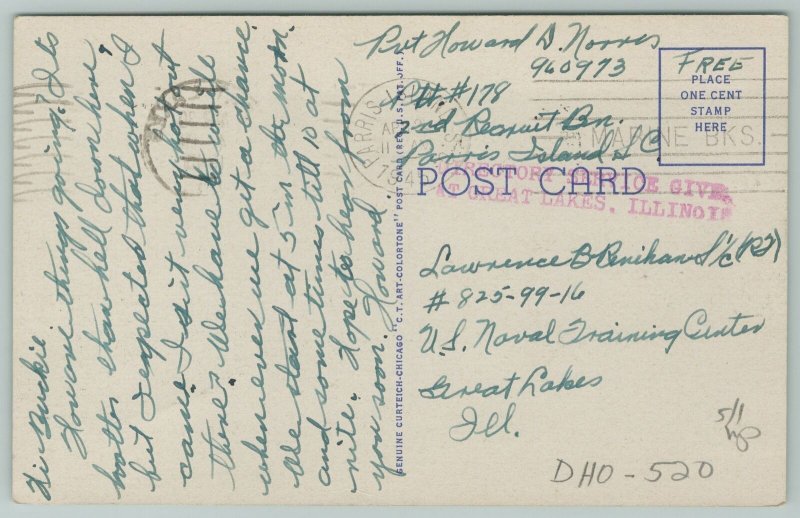 Hi Buckie
Howare things going? Its
hotter than hell down here,
but I expected that when I
came. Isit very hot out
there? We have to
whenever we get a chance.
We start at 5 in the morn.
and some times till 10 at
nite. Hope to hear from
you soon. Howard
GENUINE CURTEICH-CHICAGO "C.T. ART-COLORTONE" POST CARD (REG. U.S. PAT. OFF.)
Pvt Howard D. Norris
960973
Plt. #178
2nd Recruit Bn.
Parris Island S.C.
FREE
PLACE
ONE CENT
STAMP
HERE
PARRIS ISLAND
MARINE BKS.
POST CARD
DIRECTORY SERVICE GIVEN
AT GREAT LAKES, ILLINOIS
Lawrence B Renihan S/c (RT)
# 825-99-16
U.S. Naval Training Center
Great Lakes
Ill.
5/1
DHO-520